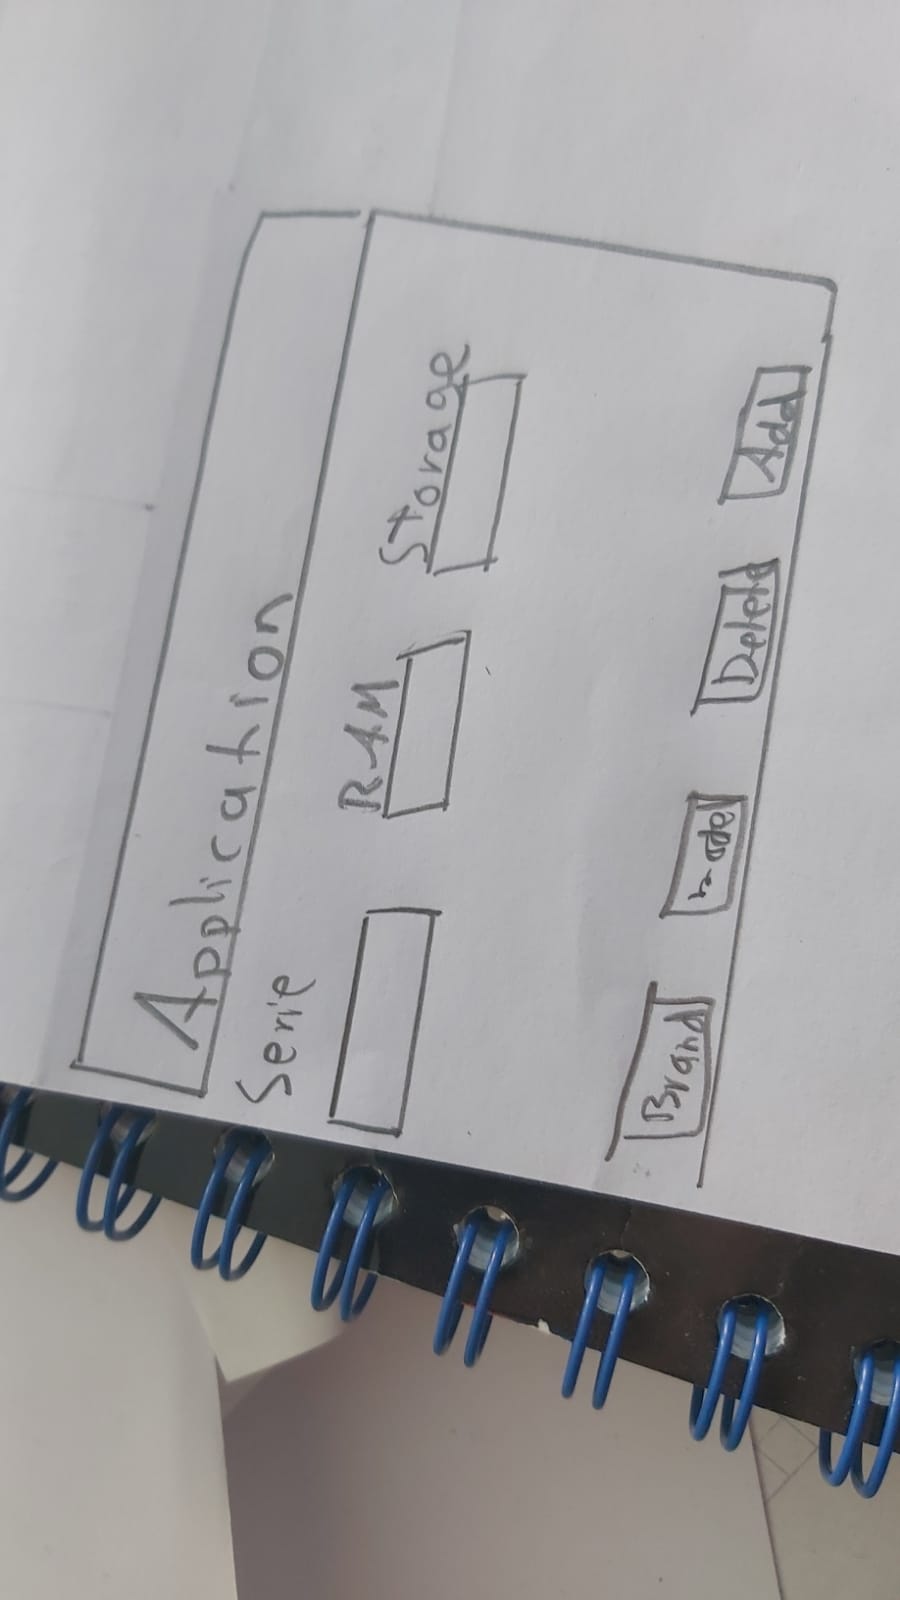 Application
Serie RAM Storage
Brand model Delete Add